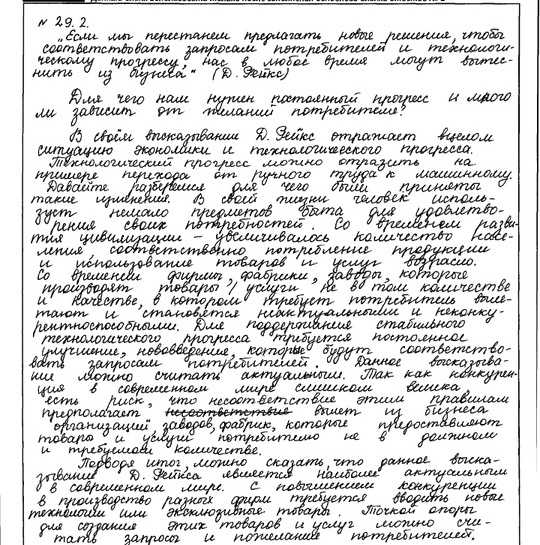 № 29.2.
„Если мы перестанем предлагать новые решения, чтобы
соответствовать запросам потребителей и технологи-
ческому прогрессу, нас в любое время могут вытес-
нить из бизнеса" (Д. Фейкс)
Для чего нам нужен постоянный прогресс и много
ли зависит от желаний потребителя?
В своём высказывании Д. Фейкс отражает вцелом
ситуацию экономики и технологического прогресса.
Технологический прогресс можно отразить на
примере перехода от ручного труда к машинному.
Давайте разберёмся для чего были приняты
такие изменения. В своей жизни человек исполь-
зует немало предметов быта для удовлетво-
рения своих потребностей. Со временем разви-
тия цивилизации – увеличивалось количество насе-
ления соответственно потребление продукции
и использование товаров и услуг возрасло.
Со временем фирмы, фабрики, заводы, которые
производят товары / услуги не в том количестве
и качестве, в котором требует потребитель выле-
тают и становятся неактуальными и неконку-
рентноспособными. Для поддержания стабильного
технологического прогресса требуется постоянное
улучшение, нововведение, которые будут соответство-
вать запросам потребителей. Данное высказыва-
ние можно считать актуальным. Так как конкурен-
ция в современном мире слишком велика,
есть риск, что несоответствие этим правилам
предполагает несоответствие вылет из бизнеса
организацией заводов, фабрик, которые предоставляют
товары и услуги потребителю не в должном
и требуемом количестве.
Подводя итог, можно сказать, что данное выска-
зывание Д. Фейкса является наиболее актуальным
в современном мире. С повышением конкуренции
в производство разных фирм требуется вводить новые
технологии или эксклюзивные товары. Точкой опоры
для создания этих товаров и услуг можно счи-
тать запросы и пожелание потребителей.